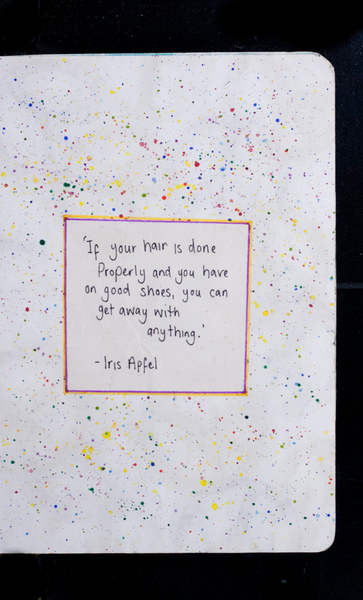 'If your hair is done
Properly and you have
on good shoes, you can
get away with
anything.'
- Iris Apfel